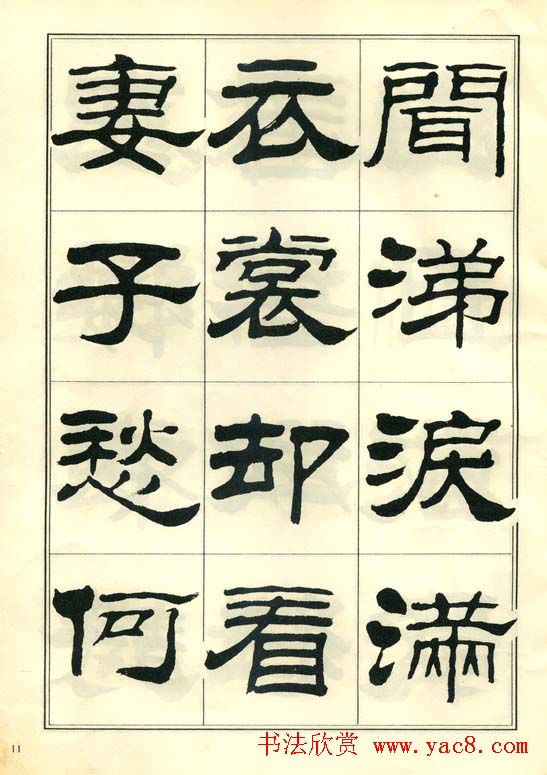 聞涕淚滿
衣裳却看
妻子愁何
11
书法欣赏 www.yac8.com